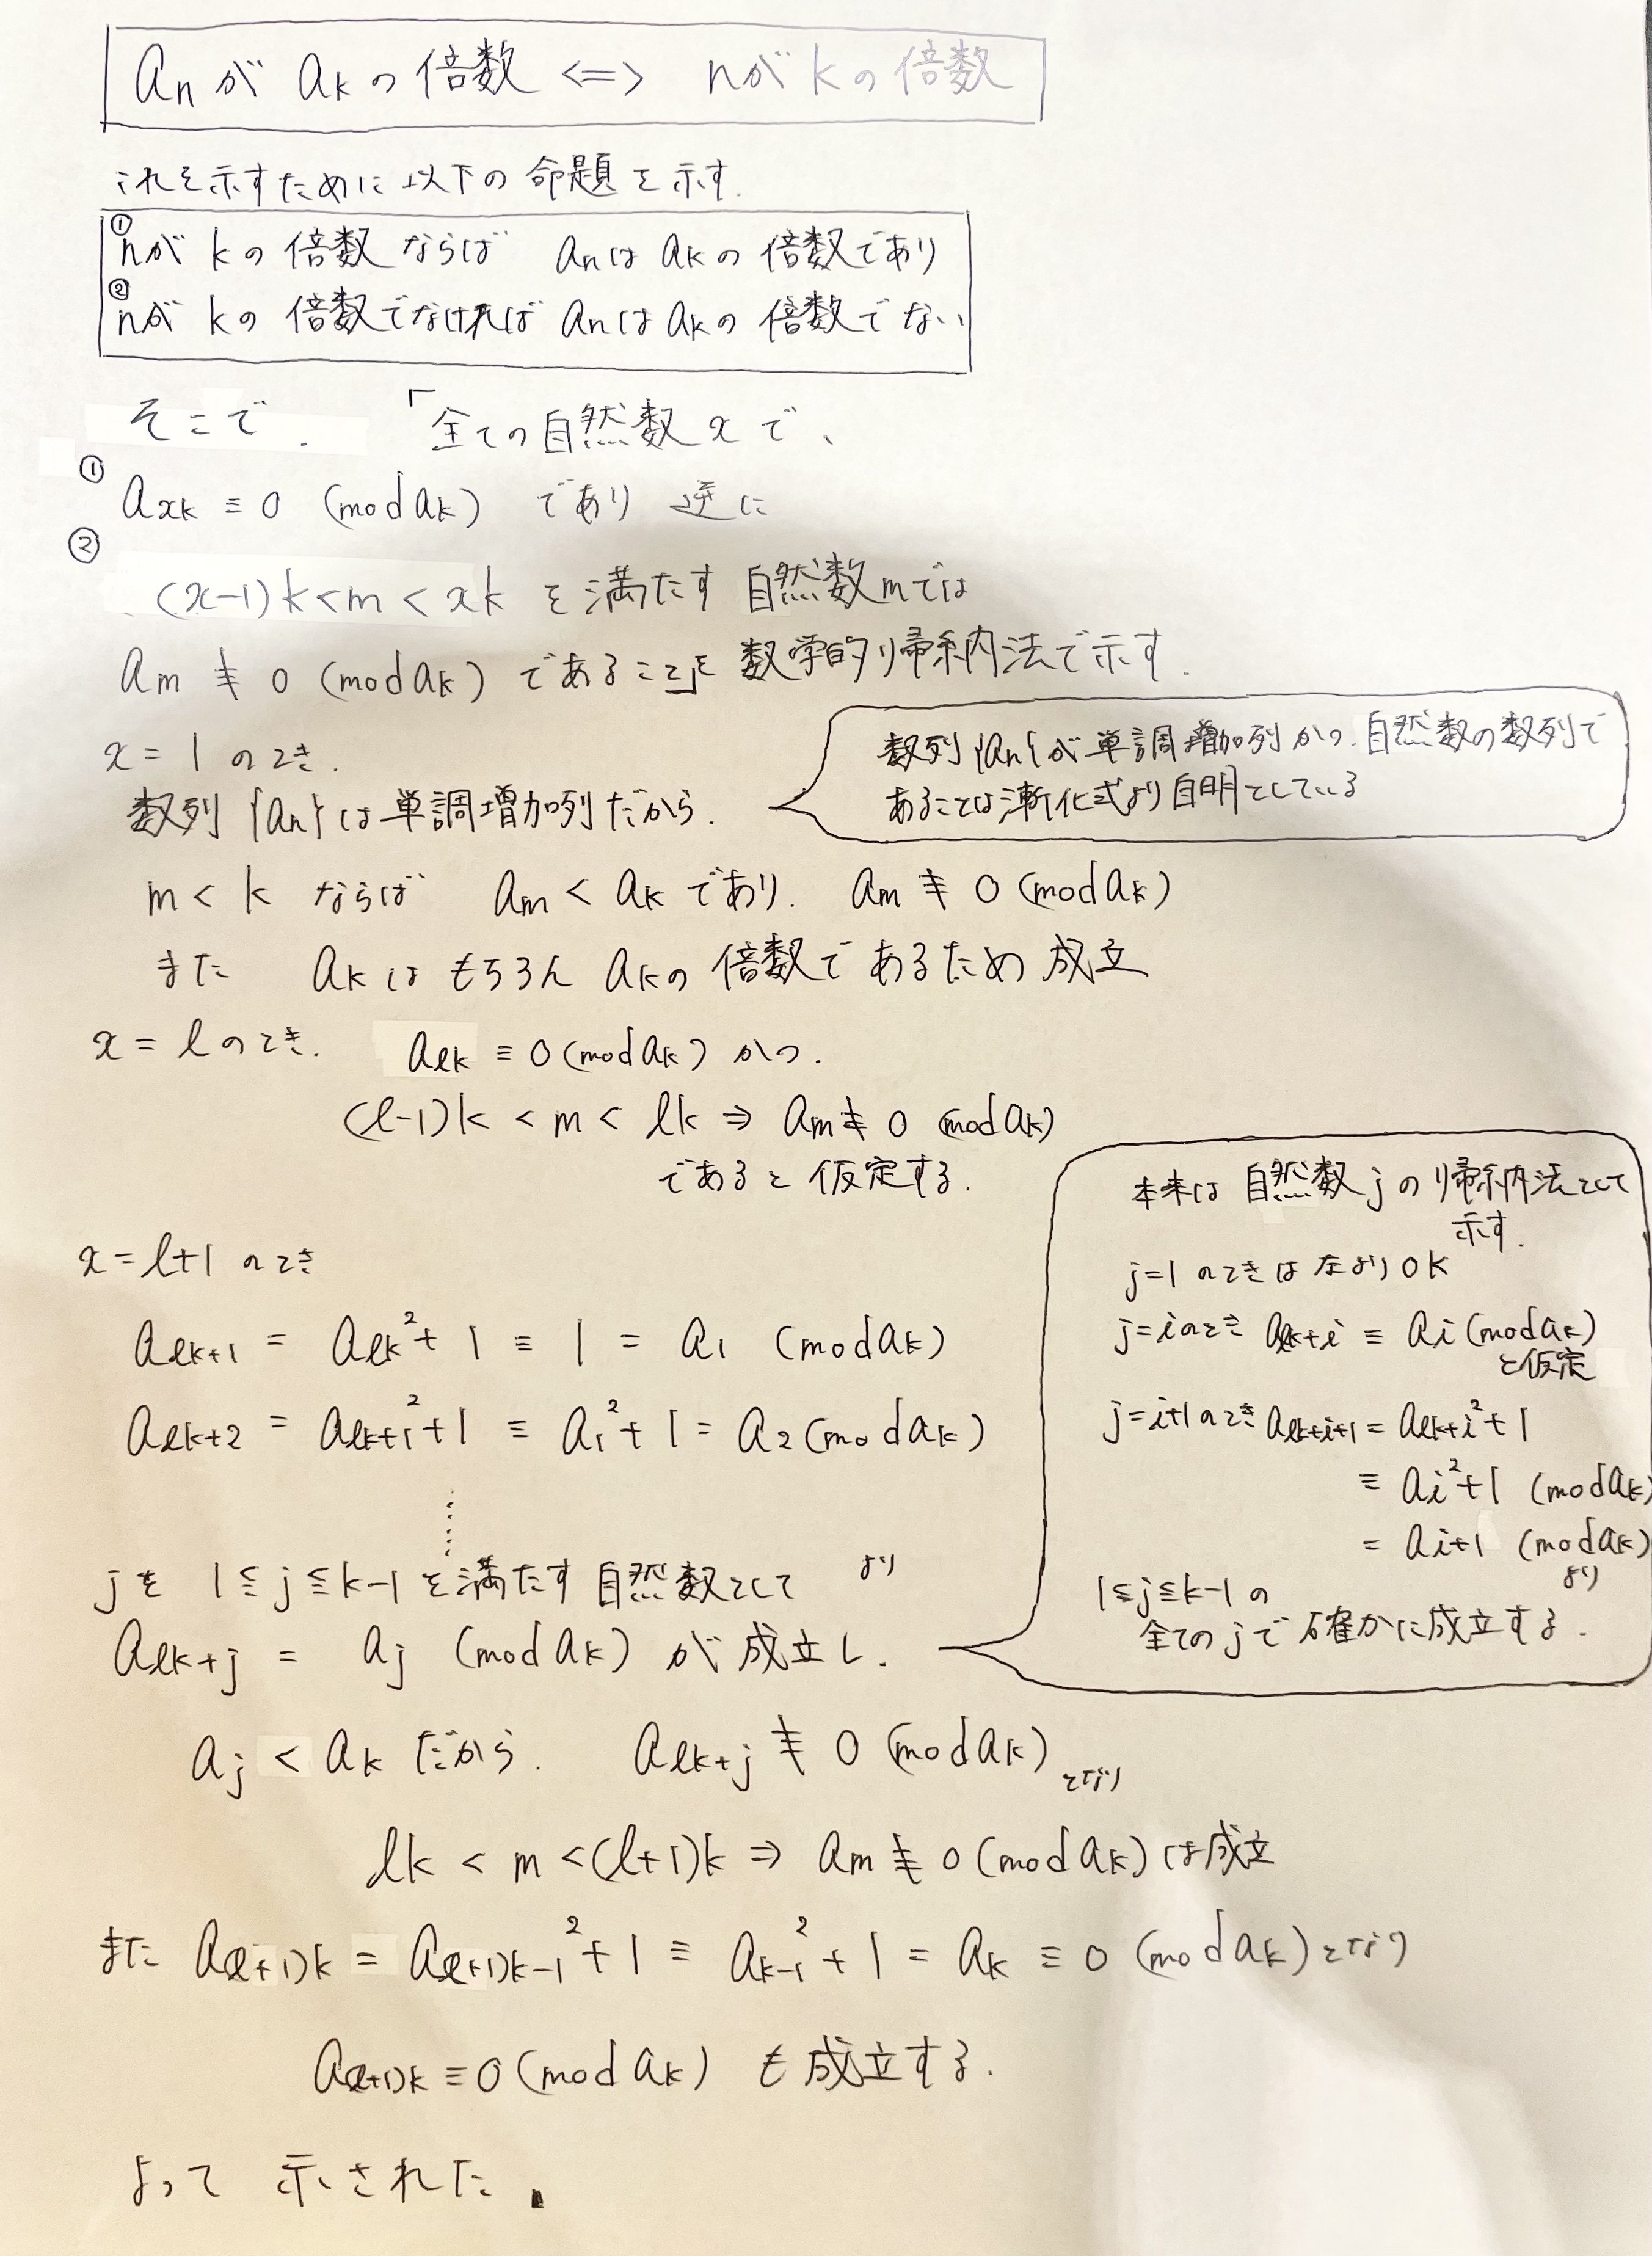 anが akの倍数 <=> nが kの倍数
これを示すために以下の命題を示す.
①nが kの倍数ならば anは akの倍数であり
②nが kの倍数でなければ anは akの倍数でない
そこで. 「全ての自然数xで、
① axk ≡ 0 (mod ak) であり 逆に
② (x-1)k<m<xk を満たす 自然数mでは
am ≢ 0 (mod ak) であること」を 数学的帰納法で示す.
x=1のとき.
数列{an}は単調増加列だから.
数列{an}が単調増加列かつ.自然数の数列で
あることは漸化式より自明としている
m<k ならば am<akであり. am ≢ 0 (mod ak)
また akはもちろん akの倍数であるため 成立
x=lのとき. alk ≡ 0 (mod ak) かつ.
(l-1)k < m < lk ⇒ am ≢ 0 (mod ak)
であると仮定する.
x=l+1のとき
alk+1 = alk²+1 ≡ 1 = a1 (mod ak)
alk+2 = alk+1²+1 ≡ a1²+1 = a2 (mod ak)
jを 1≦j≦k-1を満たす自然数として より
alk+j = aj (mod ak) が成立し.
本来は 自然数jの帰納法として
示す.
j=1のときは左よりOK
j=iのとき alk+i ≡ ai (mod ak)
と仮定
j=i+1のとき alk+i+1 = alk+i²+1
≡ ai²+1 (mod ak)
= ai+1 (mod ak)
より
1≦j≦k-1の
全てのjで確かに成立する.
aj < ak だから. alk+j ≢ 0 (mod ak) となり
lk < m < (l+1)k ⇒ am ≢ 0 (mod ak) は成立
また a(l+1)k = a(l+1)k-1²+1 ≡ ak-1²+1 = ak ≡ 0 (mod ak) となり
a(l+1)k ≡ 0 (mod ak) も成立する.
よって 示された.